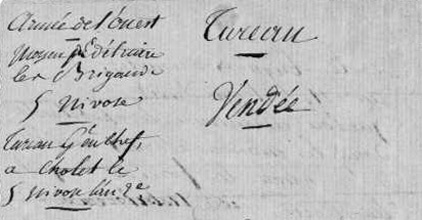 Armée de l'ouest
Moyen pr détruire
les Brigands
5 Nivose
Tureau Gén. Chef,
a Cholet le
5 Nivose l'an 2e
Tureau
Vendée